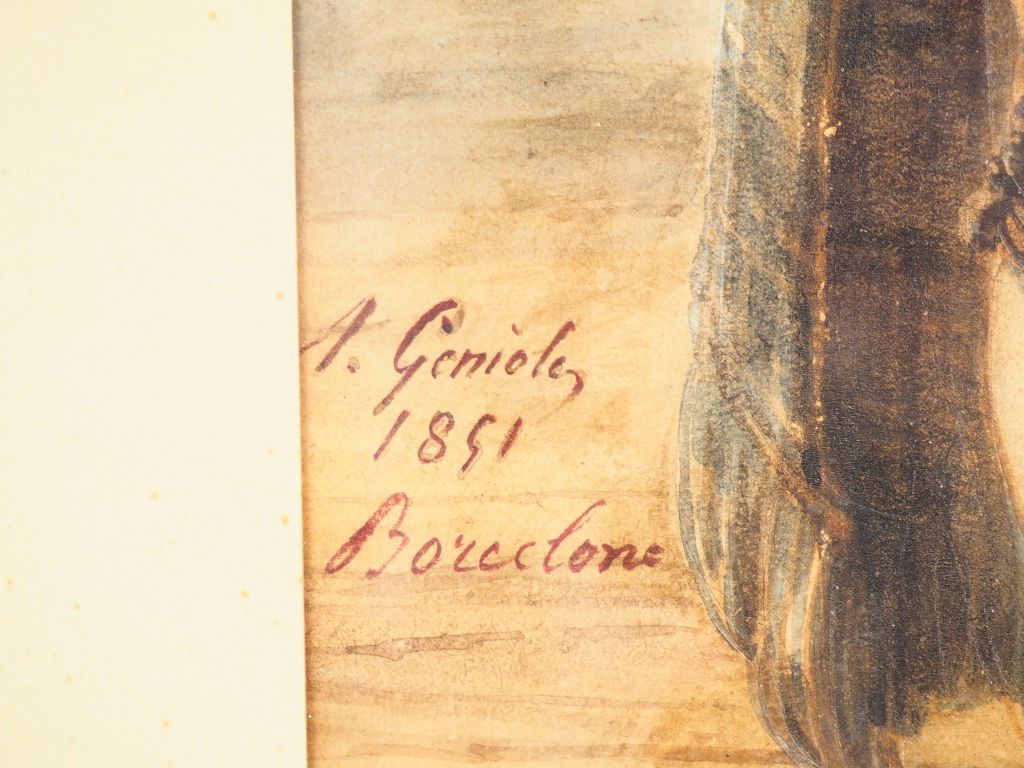 A. Geniole
1851
Barcelone